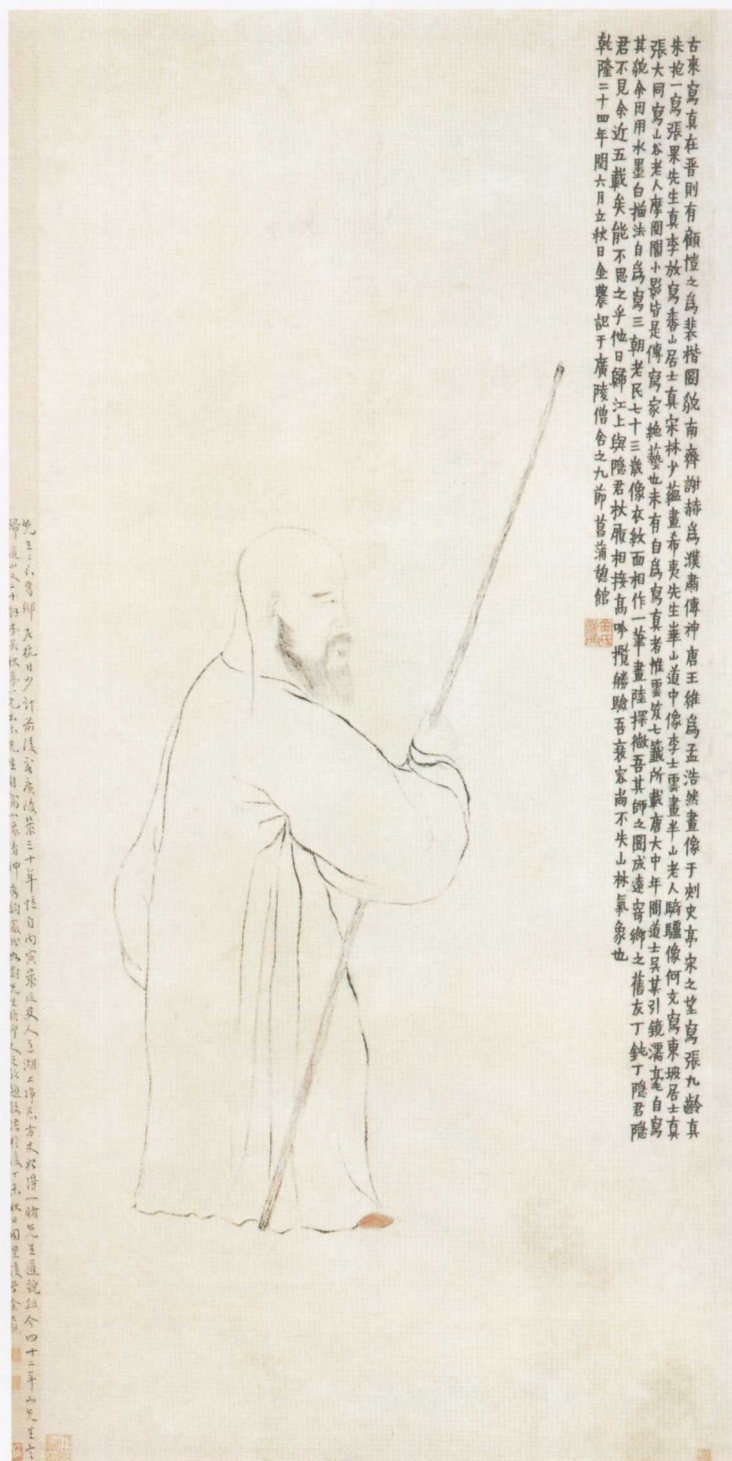 古來寫真在晋則有顧愷之爲裴楷圖貌南齊謝赫爲濮肅傳神唐王維爲孟浩然畫像于刺史亭宋之望寫張九齡真
朱抱一寫張果先生真李放寫香山居士真宋林少蘊畫希夷先生崋山道中像李士雲畫半山老人騎驢像何充寫東坡居士真
張大同寫山谷老人摩圍閣小影皆是傳寫家絶藝也未有自爲寫真者惟雲笈七籤所載唐大中年間道士吳某引鏡濡毫自寫
其貌余因用水墨白描法自爲寫三朝老民七十三歲像衣紋面相作一筆畫陸探微吾其師之圖成遠寄鄉之舊友丁鈍丁隱君隱
君不見余近五載矣能不思之乎他日歸江上與隱君杖履相接高吟攬勝驗吾衰容尚不失山林氣象也
乾隆二十四年閏六月立秋日金農記于廣陵僧舍之九節菖蒲憩館
居杭日少計前後客廣陵幾三十年 先生 今四十二年